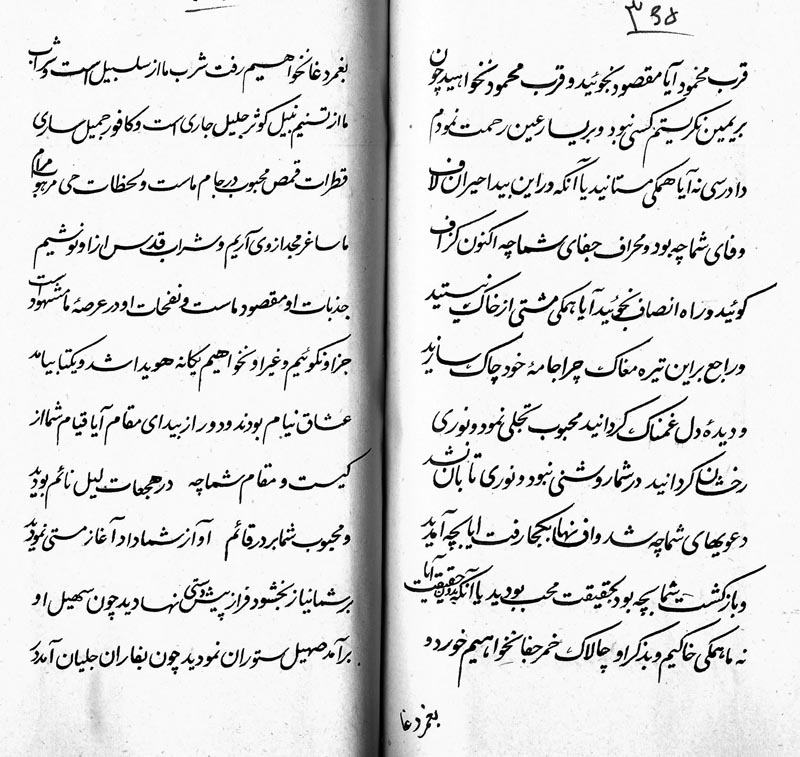 ۳۹۵
قرب مخمود آیا مقصود نجوئید و قرب محمود نخواهید چون
بر یمین نکریستم کسی نبود و بر یسار عین رحمت نمودم
دادرسی نه آیا همکی مستانید یا آنکه در این بیدا حیران لاف
وفای شما چه بود و محراف جفای شما چه اکنون کزاف
کوئید و راه انصاف نجوئید آیا همکی مشتی از خاک نیستید
و راجع بر این تیره مغاک چرا جامهٔ خود چاک سازید
و دیدهٔ دل غمناک کردانید محبوب تجلی نمود و نوری
رخشان کردانید در شما روشنی نبود و نوری تابان نشد
دعویهای شما چه شد و اف نها بکجا رفت ایا بچه آمدید
و بازکشت شما بچه بود بحقیقت محب بودید یا آنکه بدون حقیقت آیا
نه ما همکی خاکیم و بذکر او چالاک خمر جفا نخواهیم خورد و
بغمر دغا
بغمر دغا نخواهیم رفت شرب ما از سلسبیل است و شراب
ما از تسنیم نبیل کوثر جلیل جاری است و کافور جمیل ساری
قطرات قمص محبوب در جام ماست و لحظات حی مرهوب مرام
ما ساغر مجد از وی آریم و شراب قدس از او نوشیم
جذبات او مقصود ماست و نفحات او در عرصهٔ ما مشهود است
جز او نکوئیم و غیر او نخواهیم یکانه هویدا شد و یکتا بیامد
عشاق نیام بودند و دور از بیدای مقام آیا قیام شما از
کیست و مقام شما چه در هجعات لیل نائم بودید
و محبوب شما بر در قائم او آز شما داد آغاز مستی نمودید
بر شما نیاز بخشود فراز پیش دستی نهادید چون سهیل او
بر آمد صهیل ستوران نمودید چون بفاران جلیان آمد در